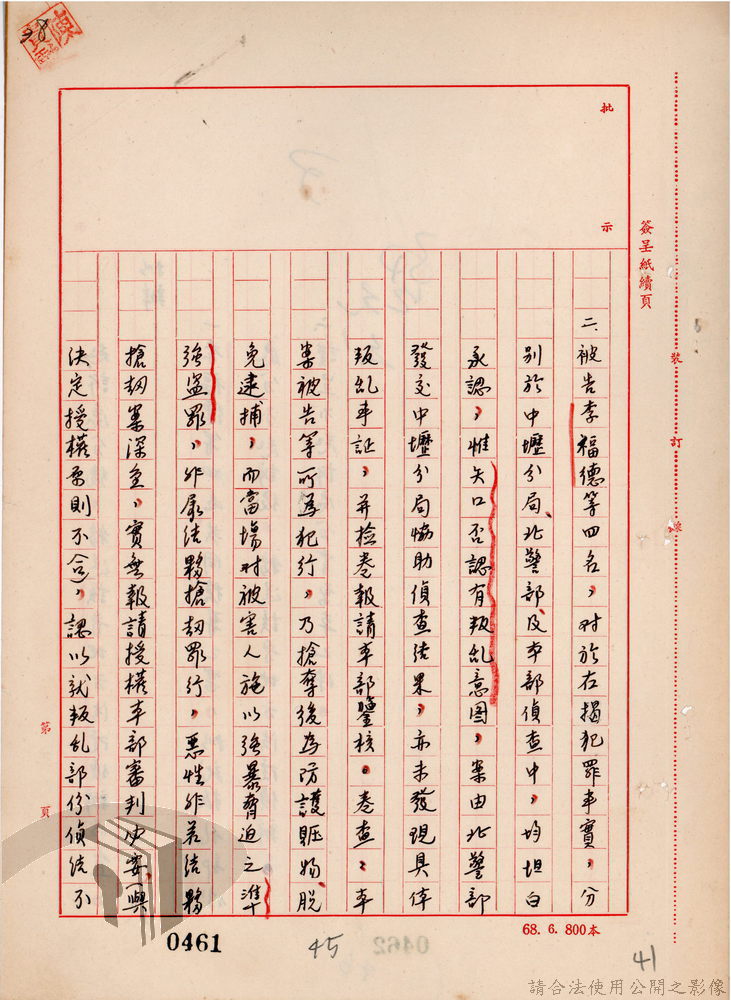 簽呈紙續頁
批示
二、被告李福德等四名，对於右揭犯罪事實，分
別於中壢分局、北警部、及本部偵查中，均坦白
承認，惟矢口否認有叛乱意图，案由北警部
發交中壢分局協助偵查结果，亦未發現具体
叛乱事証，并檢卷報請本部鑒核。卷查：本
案被告等所為犯行，乃搶奪後為防護賍物、脱
免逮捕，而當場对被害人施以強暴脅迫之準
強盜罪，非屬结夥搶刼罪行，惡性非若结夥
搶刼案深重，實無報請授權本部審判必要，與
決定授權原則不合，認以就叛乱部份偵结不
裝訂線
第 頁
68. 6. 800本
0461
45
0462
41
38
請合法使用公開之影像